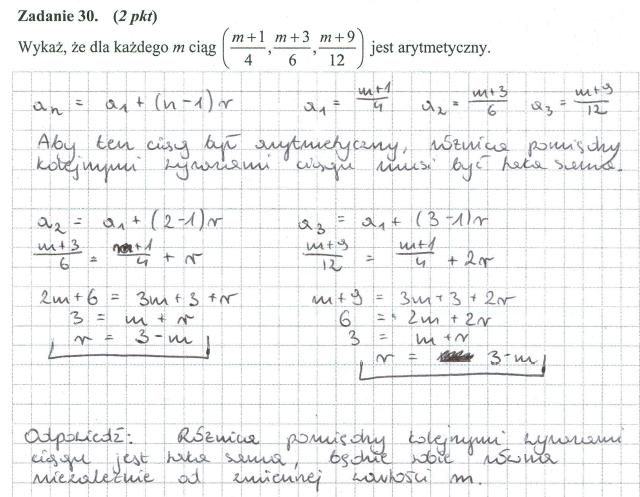 Zadanie 30. (2 pkt)
Wykaż, że dla każdego m ciąg ((m+1)/4, (m+3)/6, (m+9)/12) jest arytmetyczny.
a_n = a_1 + (n-1)r    a_1 = (m+1)/4    a_2 = (m+3)/6    a_3 = (m+9)/12
Aby ten ciąg był arytmetyczny, różnica pomiędzy
kolejnymi wyrazami ciągu musi być taka sama.
a_2 = a_1 + (2-1)r    a_3 = a_1 + (3-1)r
(m+3)/6 = (m+1)/4 + r    (m+9)/12 = (m+1)/4 + 2r
2m+6 = 3m+3+r    m+9 = 3m+3+2r
3 = m+r    6 = 2m+2r
r = 3-m    3 = m+r
r = 3-m
Odpowiedź: Różnica pomiędzy kolejnymi wyrazami
ciągu jest taka sama, będzie sobie równa
niezależnie od zmiennej wartości m.